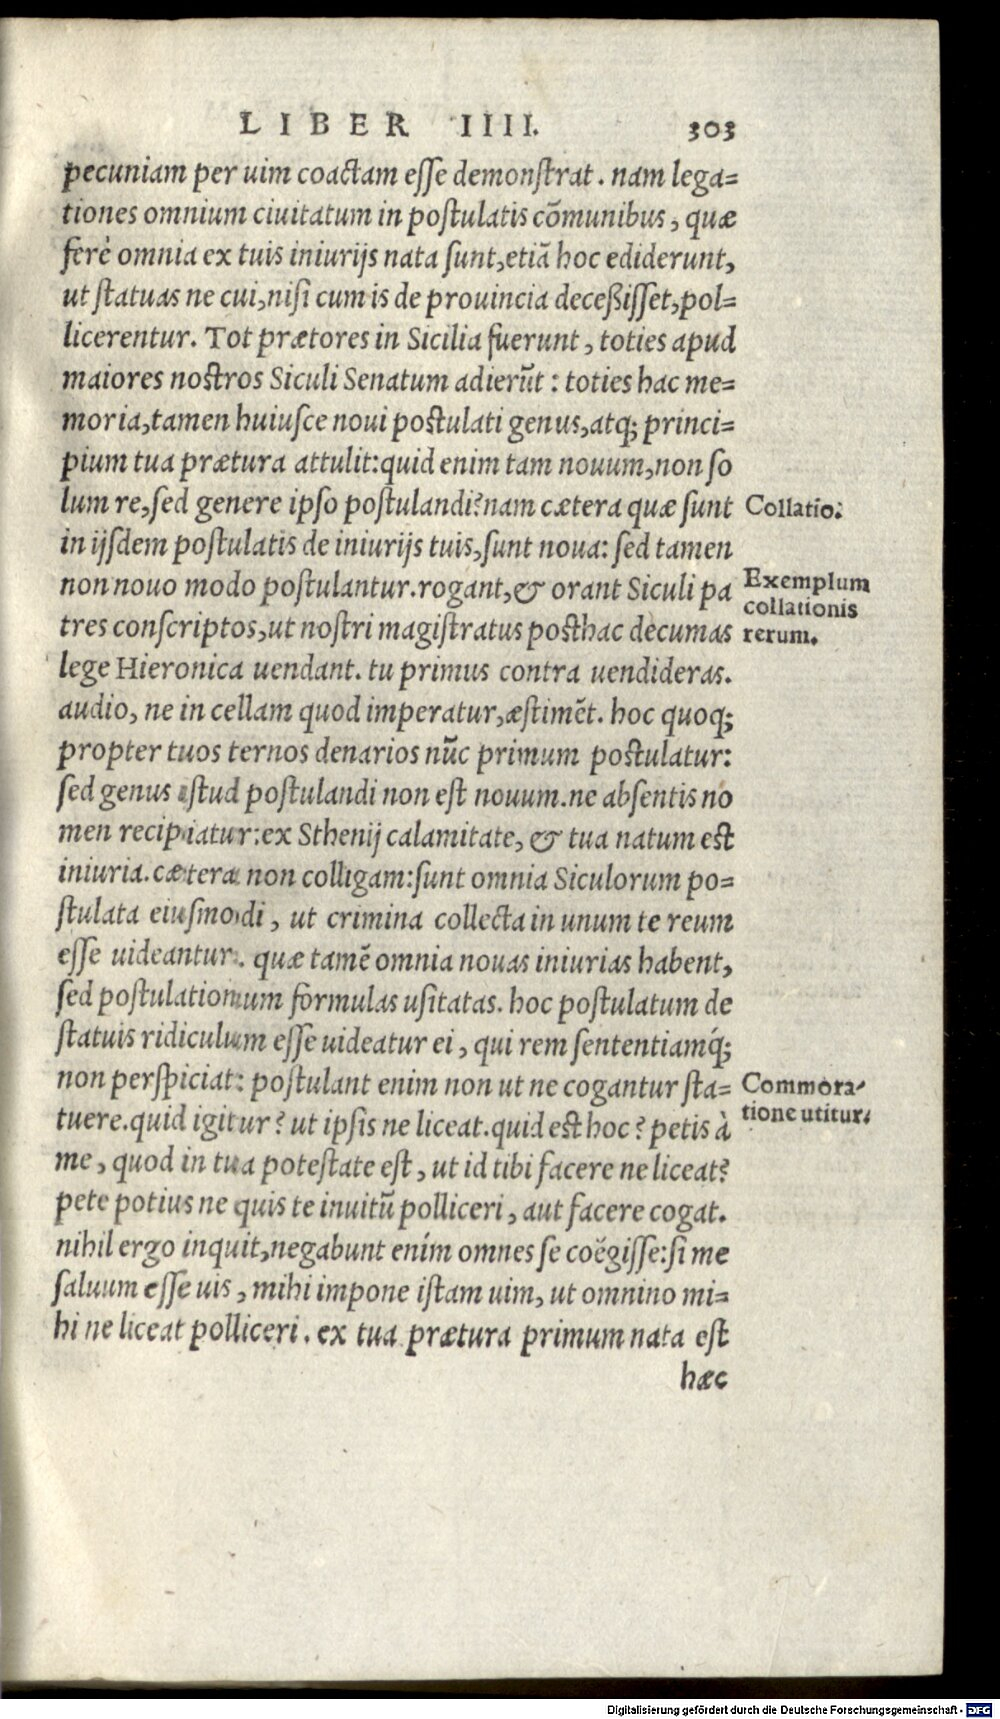 LIBER IIII. 303
pecuniam per uim coactam esse demonstrat. nam lega=
tiones omnium ciuitatum in postulatis cõmunibus, quæ
ferè omnia ex tuis iniurijs nata sunt, etiã hoc ediderunt,
ut statuas ne cui, nisi cum is de prouincia deceßisset, pol=
licerentur. Tot prætores in Sicilia fuerunt, toties apud
maiores nostros Siculi Senatum adierũt: toties hac me=
moria, tamen huiusce noui postulati genus, atq; princi=
pium tua prætura attulit: quid enim tam nouum, non so
lum re, sed genere ipso postulandi? nam cætera quæ sunt
Collatio.
in ijsdem postulatis de iniurijs tuis, sunt noua: sed tamen
non nouo modo postulantur. rogant, & orant Siculi pa
Exemplum
collationis
rerum.
tres conscriptos, ut nostri magistratus posthac decumas
lege Hieronica uendant. tu primus contra uendideras.
audio, ne in cellam quod imperatur, æstimẽt. hoc quoq;
propter tuos ternos denarios nũc primum postulatur:
sed genus istud postulandi non est nouum. ne absentis no
men recipiatur: ex Sthenij calamitate, & tua natum est
iniuria. cætera non colligam: sunt omnia Siculorum po=
stulata eiusmodi, ut crimina collecta in unum te reum
esse uideantur. quæ tamẽ omnia nouas iniurias habent,
sed postulationum formulas usitatas. hoc postulatum de
statuis ridiculum esse uideatur ei, qui rem sententiamq́;
non perspiciat: postulant enim non ut ne cogantur sta=
Commora-
tione utitur.
tuere. quid igitur? ut ipsis ne liceat. quid est hoc? petis à
me, quod in tua potestate est, ut id tibi facere ne liceat?
pete potius ne quis te inuitũ polliceri, aut facere cogat.
nihil ergo inquit, negabunt enim omnes se coëgisse: si me
saluum esse uis, mihi impone istam uim, ut omnino mi=
hi ne liceat polliceri. ex tua prætura primum nata est
hæc
Digitalisierung gefördert durch die Deutsche Forschungsgemeinschaft - DFG